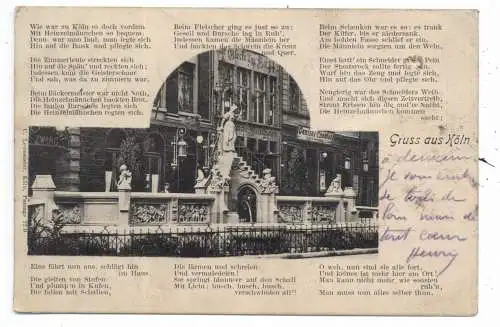 Wie war zu Köln so doch vordem
Mit Heinzelmännchen so bequem!
Denn, war man faul, man legte sich
Hin auf die Bank und pflegte sich.
Die Zimmerleute streckten sich
Hin auf die Spän' und reckten sich;
Indessen kam die Geisterschaar
Und sah, was da zu zimmern war.
Beim Bäckermeister war nicht Noth,
Die Heinzelmännchen backten Brot.
Die faulen Burschen legten sich
Die Heinzelmännchen regten sich
Beim Fleischer ging es just so zu;
Gesell und Bursche lag in Ruh',
Indessen kamen die Männlein her
Und hackten das Schwein die Kreuz
und Quer.
Beim Schenken war es so: es trank
Der Küfer, bis er niedersank,
Am hohlen Fasse schlief er ein,
Die Männlein sorgten um den Wein,
Einst hatt' ein Schneider grosse Pein
Der Staatsrock sollte fertig sein,
Warf hin das Zeug und legte sich,
Hin auf das Ohr und pflegte sich.
Neugierig war des Schneiders Weib
Und macht sich diesen Zeitvertreib;
Streut Erbsen hin die and're Nacht,
Die Heinzelmännchen kommen
sacht;
Gruss aus Köln
à demain
Je vous
de
tout cœur
Henry
Eine fährt nun aus, schlägt hin
im Haus
Die gleiten von Stufen
Und plumpen in Kufen,
Die fallen mit Schallen,
Die lärmen und schreien
Und vermaledeien!
Sie springt hinunter auf den Schall
Mit Licht: husch, husch, husch,
verschwinden all'!
O weh, nun sind sie alle fort,
Und keines ist mehr hier am Ort!
Man kann nicht mehr, wie sonsten
ruh'n,
Man muss nun alles selber thun.